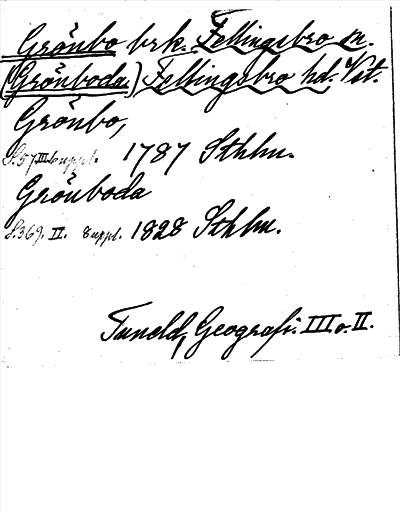 Grönbo brk. Fellingsbro sn.
(Grönboda) Fellingsbro hd. Vst.
Grönbo,
S. 57 III 6 uppl. 1787 Sthlm.
Grönboda
S. 369. II. 8 uppl. 1828 Sthlm.
Tuneld, Geografi. III o. II.